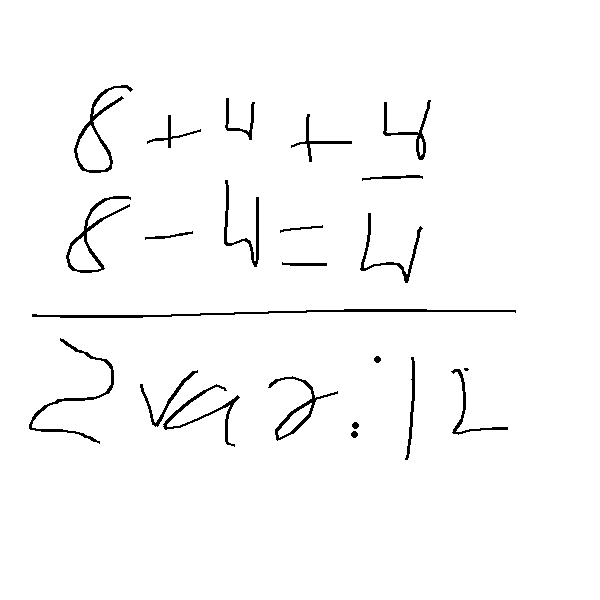 8 + 4 + 4
8 - 4 = 4
2 var : 12